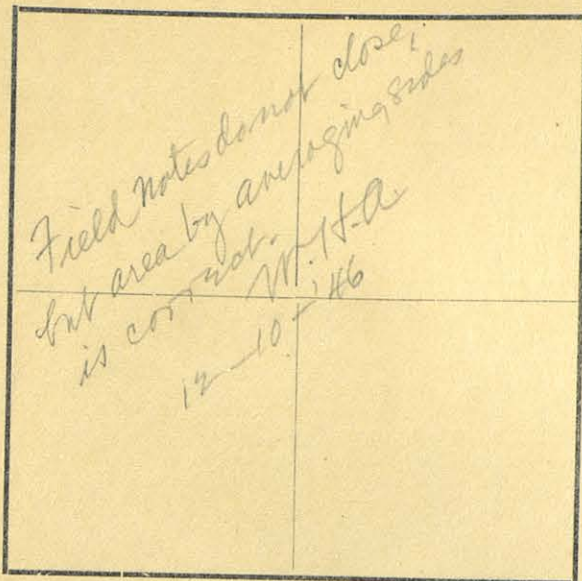 Field notes do not close,
but area by averaging sides
is correct.
W.H.A.
12-10-'46